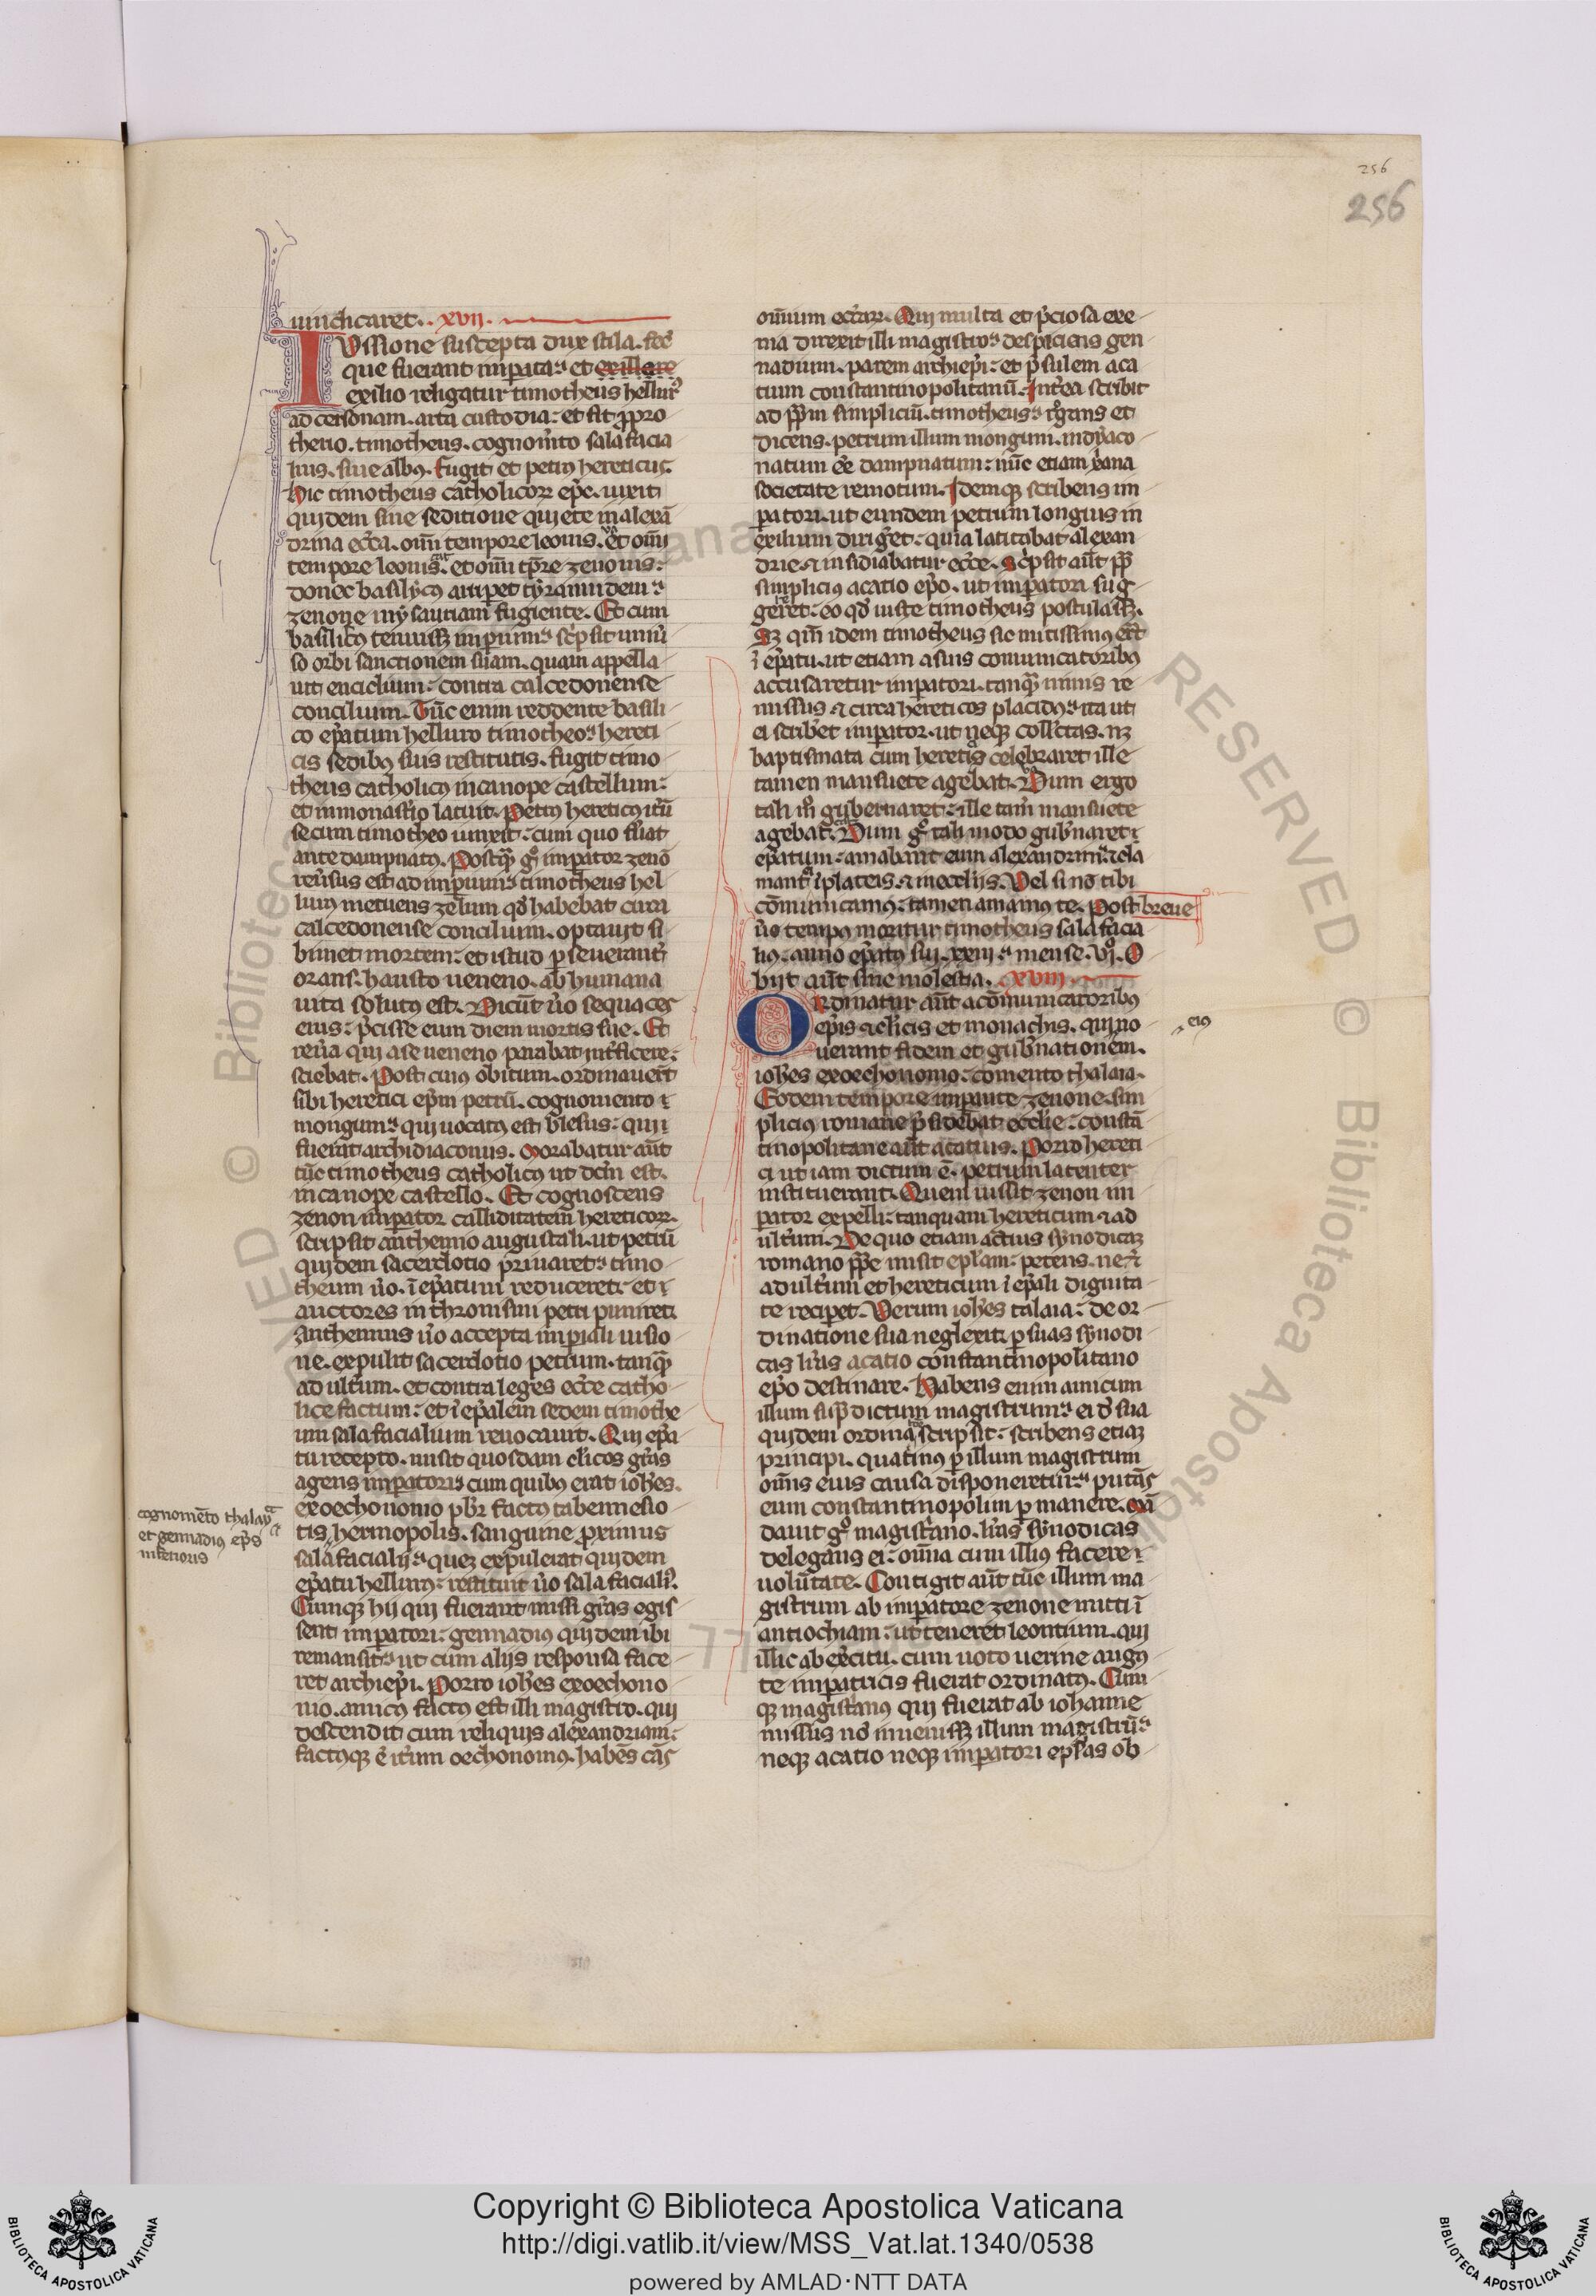 256
256
iunch caret. xvii.
Ivssione suscepta dux stila. fec̄
que fuerant impata: et exillare
exilio religatur timotheus hellur᷒
ad cersonam. arta custodia: et fit ꝓpro
therio. timotheus. cognom̄to salafacia
lius. siue albꝰ. Fugit et petrꝰ hereticus.
Hic timotheus catholicoꝝ ep̄c. uixit
quidem sine seditione quiete in alexā
drina ecc̄a. om̄i tempore leonis. et om̄i
tempore leonis. et om̄i tp̄re zenonis:
donec basilycꝰ arriperet tyrannidem:
zenone in ysauriam fugiente. Et cum
basilicꝰ tenuissꝫ imperium: scp̄sit uniū
so orbi sanctionem suam. quam appella
uit enciclium: contra calcedonense
concilium. Tūc enim reddente basili
co ep̄atum helluro timotheo: hereti
cis sedibꝰ suis restitutis. fugit timo
theus catholicꝰ in canope castellum:
et in monast̄io latuit. Petrꝰ hereticꝰ itū
secum timotheo uinxit: cum quo fūat
ante dampnatꝰ. Postq̄ᷓ gͦ imperator zenō
reūsus est ad imperium: timotheus hel
lurus metuens zelum qd̄ habebat circa
calcedonense concilium. optauit si
bimet mortem: et istud perseuerant᷒
orans. hausto ueneno. ab humana
uita solutus est. Dicūt ūo sequaces
eius: p̄cisse eum diem mortis sue. Et
reūa qui a se ueneno parabat int̄ficere:
sciebat. Post cuius obitum. ordinauer̄t
sibi heretici ep̄m petrū. cognomento
mongum: qui uocatꝰ est blesus: qui
fuerat archidiaconus. Morabatur aūt
tūc timotheus catholicꝰ ut dc̄m est.
in canope castello. Et cognoscens
zenon imperator calliditatem hereticoꝝ.
scripsit anthemio augustali. ut petrū
quidem sacerdotio priuaret: timo
theum ūo. ī ep̄atum reduceret: et
auctores inthronismi petri puniret.
Anthemius ūo accepta imperiali iussio
ne. expulit sacerdotio petrum. tanqᷓ
adult̄um. et contra leges ecc̄e catho
lice factum: et ī ep̄alem sedem timothe
um salafacialium reuocauit. Qui ep̄a
tu recepto. misit quosdam cl̄icos gr̄as
agens imperatori: cum quibꝰ erat ioh̄es.
exoechonomo pb̄r factꝰ tabennesio
tis hermopolis. sanguine proximus
salafacialij: quez expulerat quidem
ep̄atu hellurꝰ: restituit ūo salafaciali᷒.
Cumqꝫ hij qui fuerant missi gr̄as egis
sent imperatori: gennadiꝰ quidem ibi
remansit: ut cum alijs responsa face
ret archiep̄i. Porro ioh̄es exoechono
mo. amicꝰ factꝰ est illi magistro. qui
descendit cum reliquis alexandriam:
factꝰqꝫ ē it̄um oechonomꝰ. habēs cās
cognomēto thalaya
et gennadiꝰ ep̄s
inferioris
om̄ium ecc̄aꝝ. Qui multa et p̄ciosa exe
nia direxit illi magistro: despiciens gen
nadium. parem archiep̄i: et p̄sulem aca
tium constantinopolitanū. Int̄ea scribit
ad pp̄m simpliciū. timotheus: rogans et
dicens. petrum illum mongum. in dyaco
natum eē dampnatum: nūc etiam xp̄iana
societate remotum. Idemqꝫ scribens im
peratori. ut eundem petrum longius in
exilium dirig̃et: quia latitabat alexan
drie. et insidiabatur ecc̄e. Scp̄sit aūt pp̄
simplicius acatio ep̄o. ut imperatori sug
geret: eo qd̄ iuste timotheus postulassꝫ.
Sꝫ qm̄ idem timotheus sic mitissimꝰ erāt
ī ep̄atu. ut etiam a suis comunicatoribꝰ
accusaretur imperatori. tanqᷓ nimis re
missus et circa hereticos placidus: ita ut
ei scriberet imperator. ut neqꝫ coll̄ctas. nꝫ
baptismata cum heretis celebraret ille
tamen mansuete agebat. Dum ergo
tali m̊ gubernaret: ille tam̄ mansuete
agebat. Dum gͦ tali modo gub̄naret
ep̄atum: amabant eum alexandrini: et cla
mant ī plateis. et in eccl̄ijs. Vel si nō tibi
cōmunicamꝰ: tamen amamꝰ te. Post breue
ūo tempꝰ moritur timotheus salafacia
liꝰ. anno ep̄atꝰ sui. xxiij. mense. vj. O
bijt aūt sine molestia. xviii.
Ordinatur aūt a cōmunicatoribꝰ
ep̄is et cl̄icis et monachis. qui no
uerant fidem et gub̄nationem. eiꝰ
ioh̄es exoechonomo: comento thalaia.
Eodem tempore imperante zenone. sim
plicius romane p̄sidebat ecclie: constā
tinopolitane aūt acatius. Porro hereti
ci ut iam dictum ē. petrum latenter
instituerant. Quem iussit zenon im
perator expelli: tanquam hereticum et ad
ult̄um. De quo etiam actius synodicaꝫ
romano pp̄e misit epl̄am: petens. ne
adult̄um et hereticum ī ep̄ali dignita
te reciperet. Verum ioh̄es talaia: de or
dinatione sua neglexit. per suas synodi
cas lr̄as acatio constantinopolitano
ep̄o destinare. Habens enim amicum
illum sup̄dictum magistrum: ei de sua
quidem ordinatōe scripsit: scribens etiaꝫ
principi. quatinus per illum magistrum
om̄is eius causa disponeretur: putās
eum constantinopolim permanere. Mā
dauit gͦ magistrano. lr̄as synodicas
delegans ei: om̄ia cum illius facere
voluntate. Contigit aūt tūc illum ma
gistrum ab imperatore zenone mitti ī
antiochiam: ut teneret leontium. qui
illic ab exercitu. cum uoto uerine augꝰ
te imperatricis fuerat ordinatꝰ. Cum
qꝫ magistranꝰ qui fuerat ab iohanne
missus nō inuenissꝫ illum magistrū:
neqꝫ acatio neqꝫ imperatori epl̄as ob
Copyright © Biblioteca Apostolica Vaticana
http://digi.vatlib.it/view/MSS_Vat.lat.1340/0538
powered by AMLAD·NTT DATA